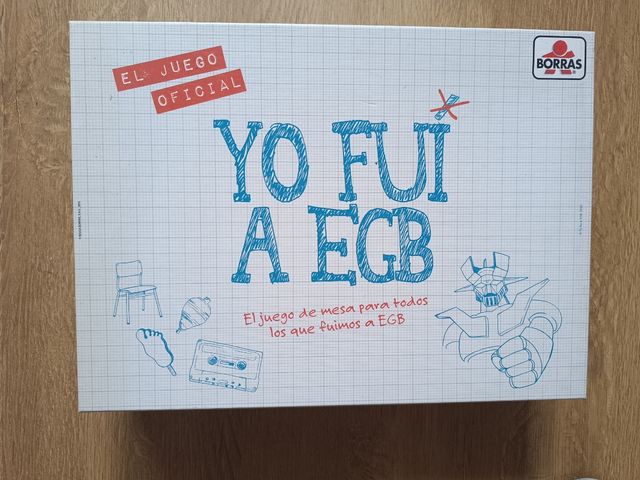 EL JUEGO
OFICIAL
BORRAS
YO FUI
A EGB
El juego de mesa para todos
los que fuimos a EGB